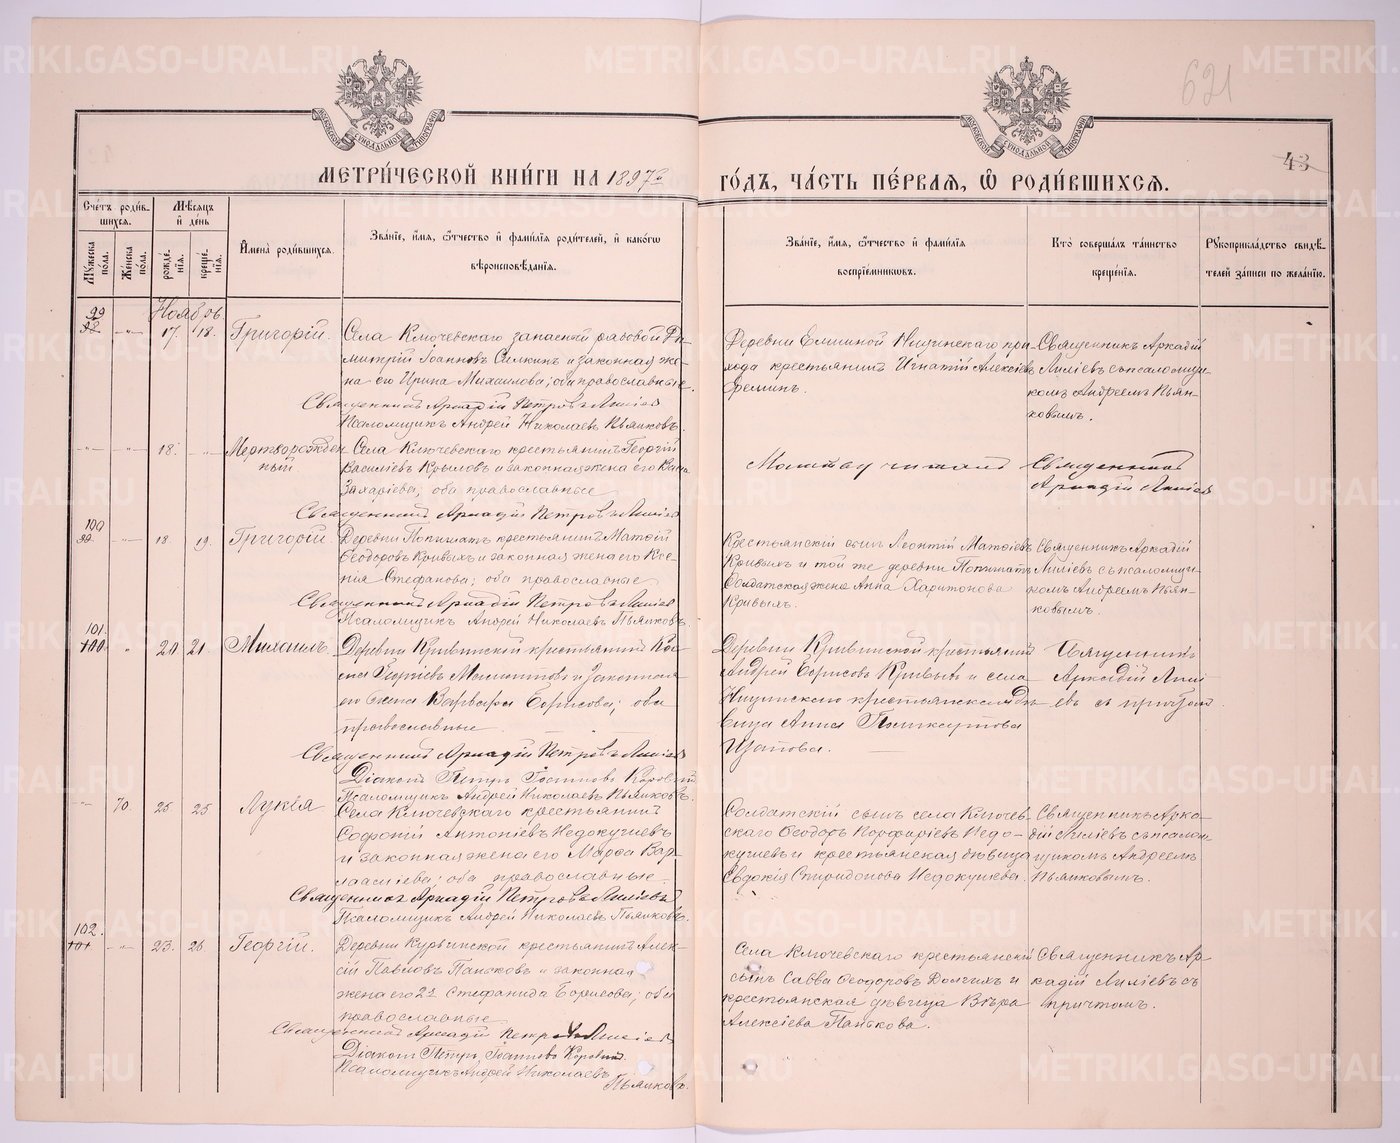 621
43
МОСКОВСКОЙ СѴНОДАЛЬНОЙ ТИПОГРАФІИ
МОСКОВСКОЙ СѴНОДАЛЬНОЙ ТИПОГРАФІИ
МЕТРИ́ЧЕСКОЙ КНИ́ГИ НА 1897й
ГО́ДЪ, ЧА́СТЬ ПЕ́РВАЯ, Ѡ҆ РОДИ́ВШИХСЯ.
Сче́тъ роди́в-
шихся.
Мѣ́сяцъ
и҆ де́нь
Мꙋ́жеска
по́ла.
Же́нска
по́ла.
рожде́-
нія.
креще́-
нія.
И҆мена̀ роди́вшихся.
Зва́ніе, и҆́мя, ѻ҆́тчество и҆ фами́лія роди́телей, и҆ како́гѡ
вѣроисповѣ́данія.
Зва́ніе, и҆́мя, ѻ҆́тчество и҆ фами́лія
воспріе́мникѡвъ.
Кто̀ соверша́лъ та́инство
креще́нія.
Рꙋкоприкла́дство свидѣ́-
телей за́писи по жела́нію.
Ноябрь
99
98 -"- 17. 18. Григорій.
Села Ключевскаго запасный рядовой Ди-
митрій Іоанновъ Силкинъ и законная же-
на его Ирина Михаилова; оба православные.
Священникъ Аркадій Петровъ Лиліевъ
Псаломщикъ Андрей Николаевъ Пьянковъ.
Деревни Ницинскаго при-
хода крестьянинъ Игнатій Алексіевъ
Еремин.
Священникъ Аркадій
Лиліевъ съ псаломщи-
комъ Андреемъ Пьян-
ковымъ.
-"- -"- 18. -"- Мертворожден
ный.
Села Ключевскаго крестьянинъ Георгій
Василіевъ Крыловъ и законная жена его
Захаріева; оба православные
Священникъ Аркадій Петровъ Лиліевъ
Молитву читалъ
Священникъ
Аркадій Лиліевъ
100
99 -"- 18. 19. Григорій.
Деревни крестьянинъ Матѳій
Ѳеодоровъ Кривыхъ и законная жена его Ксе-
нія Стефанова; оба православные
Священникъ Аркадій Петровъ Лиліевъ
Псаломщикъ Андрей Николаевъ Пьянковъ.
Крестьянскій сынъ Леонтій Матѳіевъ
Кривыхъ и той же деревни
Солдатская жена Анна Харитонова
Кривыхъ.
Священникъ Аркадій
Лиліевъ съ псаломщи-
комъ Андреемъ Пьян-
ковымъ.
101.
100 " 20 21. Михаилъ.
Деревни Кривинской крестьянинъ
Георгіевъ и законная
его жена Варвара Борисова; оба
православные
Священникъ Аркадій Петровъ Лиліевъ
Діаконъ Петръ Іоанновъ Коровинъ
Псаломщикъ Андрей Николаевъ Пьянковъ.
Деревни Кривинской крестьянинъ
Андрей Борисовъ Кривыхъ и села
Ницинскаго крестьянская дѣ-
вица Анна Поликарпова
Священникъ
Аркадій Лилі-
евъ съ причтомъ
-"- 70 25 25 Лукія
Села Ключевскаго крестьянинъ
Софоній Антоніевъ Недокушевъ
и законная жена его Марѳа Вар-
лааміева; оба православные
Священникъ Аркадій Петровъ Лиліевъ
Псаломщикъ Андрей Николаевъ Пьянковъ.
Солдатскій сынъ села Ключев-
скаго Ѳеодоръ Порфиріевъ Недо-
кушевъ и крестьянская дѣвица
Евдокія Спиридонова Недокушева.
Священникъ Арка-
дій Лиліевъ съ псалом-
щикомъ Андреемъ
Пьянковымъ.
102.
101 -"- 23. 26. Георгій.
Деревни Курьинской крестьянинъ Алек-
сій Павловъ Паньковъ и законная
жена его 2я Стефанида Борисова; оба
православные
Священникъ Аркадій Петровъ Лиліевъ
Діаконъ Петръ Іоанновъ Коровинъ
Псаломщикъ Андрей Николаевъ
Пьянковъ.
Села Ключевскаго крестьянскій
сынъ Савва Ѳеодоровъ Долгихъ и
крестьянская дѣвица Вѣра
Алексіева Панькова.
Священникъ Ар-
кадій Лиліевъ съ
причтомъ.
METRIKI.GASO-URAL.RU